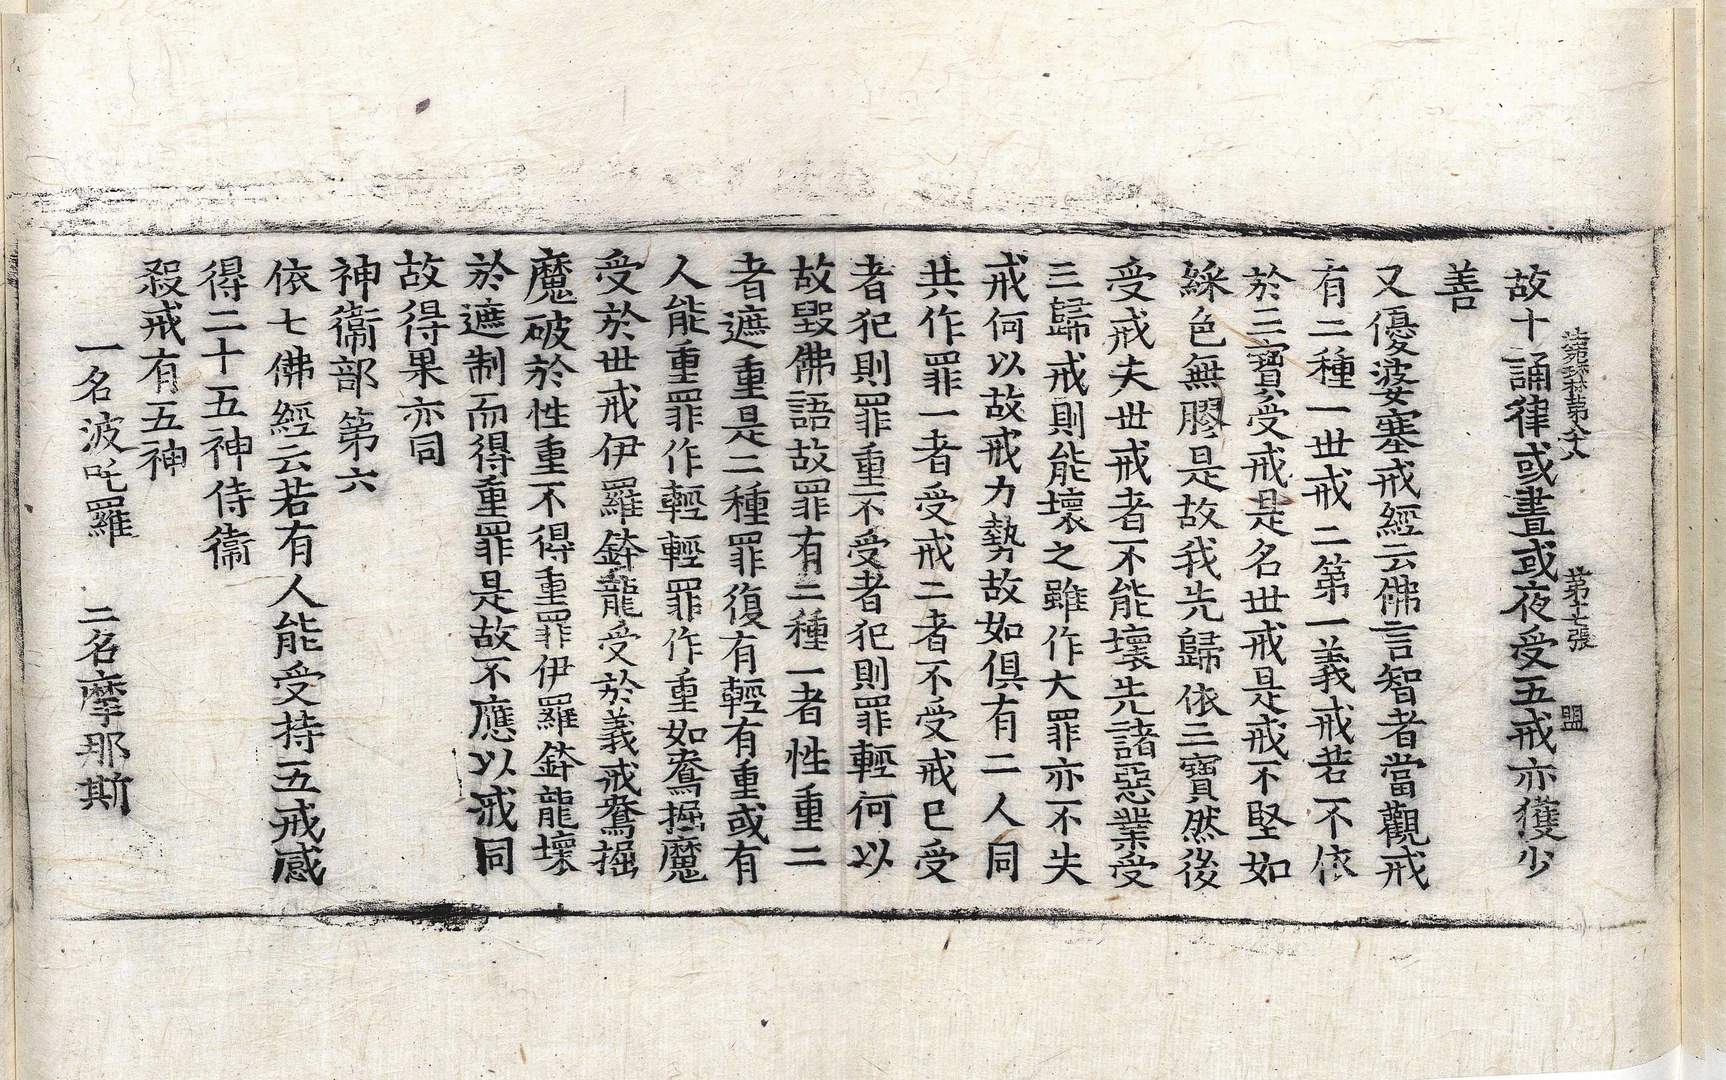 法苑珠林第八十八 第七張 盟
故十誦律或晝或夜受五戒亦獲少
善
又優婆塞戒經云佛言智者當觀戒
有二種一世戒二第一義戒若不依
於三寶受戒是名世戒是戒不堅如
綵色無膠是故我先歸依三寶然後
受戒夫世戒者不能壞先諸惡業受
三歸戒則能壞之雖作大罪亦不失
戒何以故戒力勢故如俱有二人同
共作罪一者受戒二者不受戒已受
者犯則罪重不受者犯則罪輕何以
故毀佛語故罪有二種一者性重二
者遮重是二種罪復有輕有重或有
人能重罪作輕輕罪作重如鴦掘魔
受於世戒伊羅鉢龍受於義戒鴦掘
魔破於性重不得重罪伊羅鉢龍壞
於遮制而得重罪是故不應以戒同
故得果亦同
神衞部第六
依七佛經云若有人能受持五戒感
得二十五神侍衞
殺戒有五神
一名波吒羅 二名摩那斯